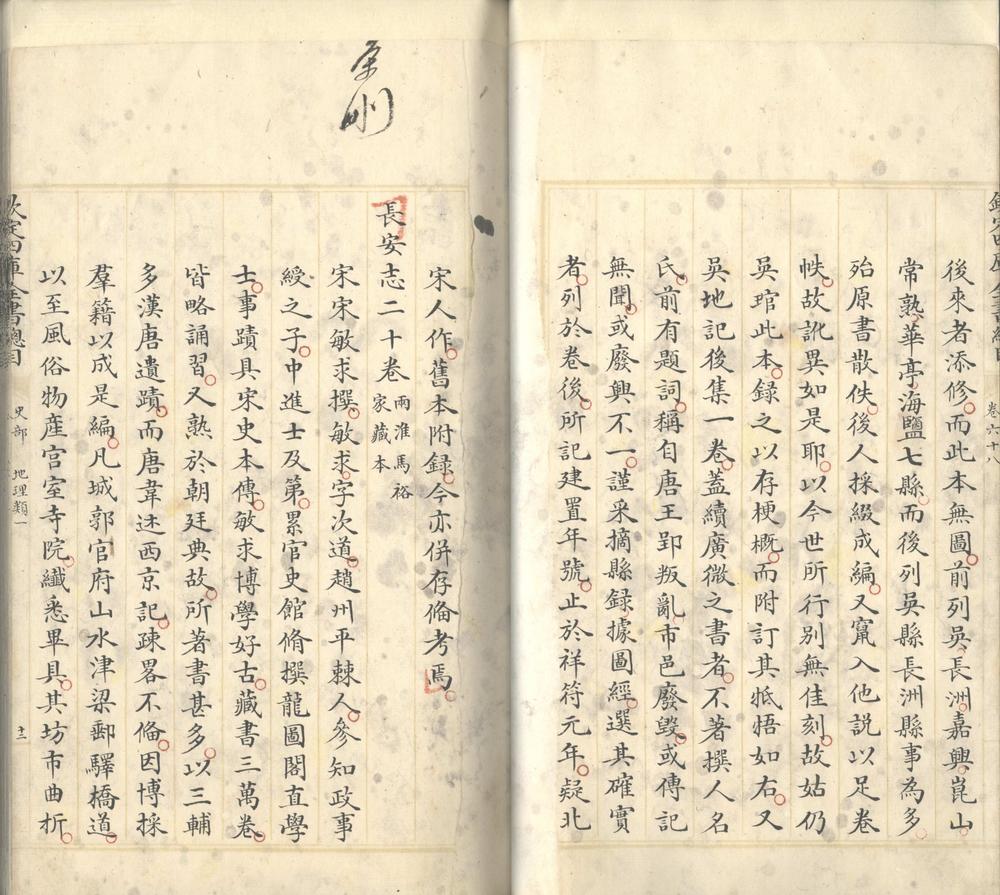 後來者添修而此本無圖前列吳長洲嘉興崑山
常熟華亭海鹽七縣而後列吳縣長洲縣事為多
殆原書散佚後人採綴成編又竄入他説以足卷
帙故訛異如是耶以今世所行別無佳刻故姑仍
吳琯此本録之以存梗概而附訂其牴牾如右又
吳地記後集一卷蓋續廣微之書者不著撰人名
氏前有題詞稱自唐王郢叛亂市邑廢毁或傳記
無聞或廢興不一謹采摘縣録據圖經選其確實
者列於卷後所記建置年號止於祥符元年疑北
卷六十八
宋人作舊本附録今亦併存俻考焉
長安志二十卷
兩淮馬裕
家藏本
宋宋敏求撰敏求字次道趙州平棘人參知政事
綬之子中進士及第累官史館脩撰龍圖閣直學
士事蹟具宋史本傳敏求博學好古藏書三萬卷
皆略誦習又熟於朝廷典故所著書甚多以三輔
多漢唐遺蹟而唐韋述西京記疎畧不俻因博採
羣籍以成是編凡城郭官府山水津梁郵驛橋道
以至風俗物産宫室寺院纖悉畢具其坊市曲折
欽定四庫全書總目
史部
地理類一
十二